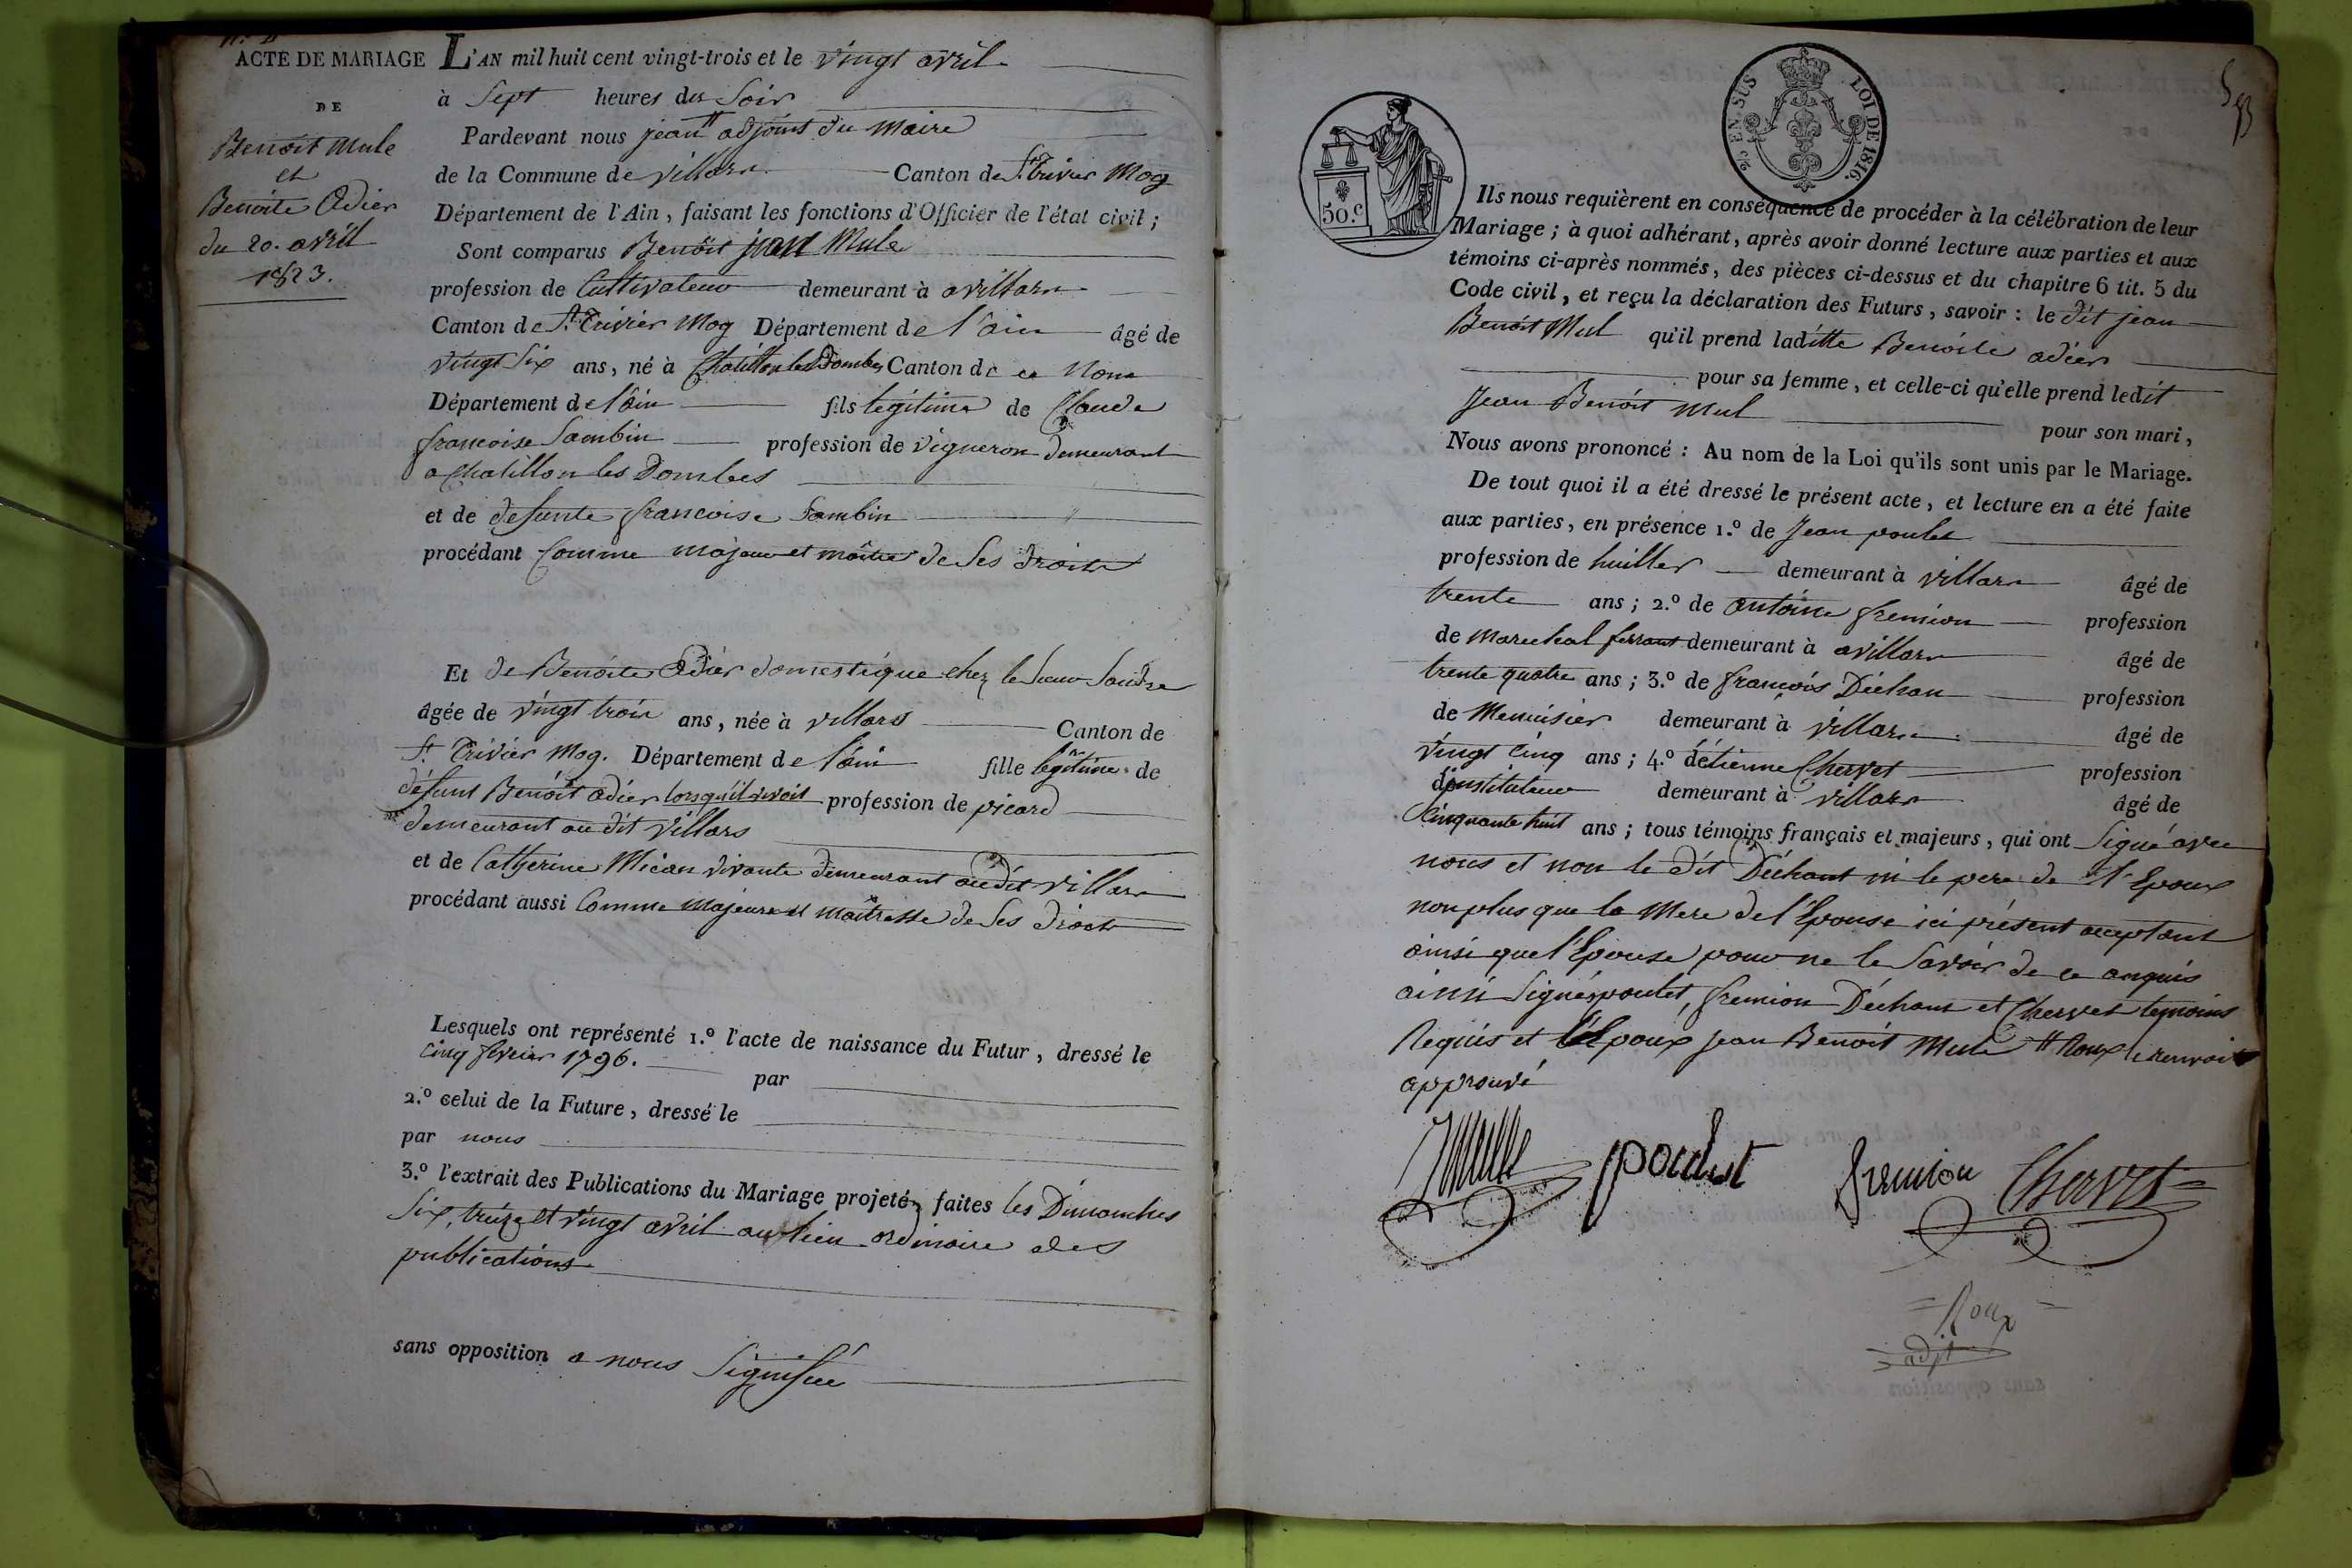 ACTE DE MARIAGE
DE
Benoît Mule
et
Benoite Adier
du 20. avril
1823.
L'AN mil huit cent vingt-trois et le vingt avril
à Sept heures du Soir
Pardevant nous jean # adjoint du Maire
de la Commune de villars Canton de St. trivier Mog
Département de l'Ain, faisant les fonctions d'Officier de l'état civil;
Sont comparus Benoit jean Mule
profession de Cultivateur demeurant à avillars
Canton de St. Trivier Mog Département de l'ain âgé de
vingt Six ans, né à Chatillon les Dombes Canton de ce Nom
Département de l'ain fils légitime de Claude
francoise Sambin profession de vigneron demeurant
a Chatillon les Dombes
et de defunte francoise Sambin
procédant Comme majeur et maître de Ses droits
Et de Benoite Adier domestique chez le Sieur
âgée de vingt trois ans, née à villars Canton de
St. Trivier Mog. Département de l'ain fille légitime de
défunt Benoit adier lorsqu'il vivoit profession de picard
demeurant au dit villars
et de Catherine Micau vivante demeurant au dit villars
procédant aussi Comme Majeure et maîtresse de Ses droits
Lesquels ont représenté 1.º l'acte de naissance du Futur, dressé le
Cinq fevrier 1796. par
2.º celui de la Future, dressé le
par nous
3.º l'extrait des Publications du Mariage projeté, faites les Dimanches
Six, treize et vingt avril au lieu ordinaire des
publications
sans opposition a nous Signifiée
50.c
EN SUS
LOI DE 1816.
Ils nous requièrent en conséquence de procéder à la célébration de leur
Mariage; à quoi adhérant, après avoir donné lecture aux parties et aux
témoins ci-après nommés, des pièces ci-dessus et du chapitre 6 tit. 5 du
Code civil, et reçu la déclaration des Futurs, savoir: le dit jean
Benoit Mul qu'il prend laditte Benoite adier
pour sa femme, et celle-ci qu'elle prend ledit
Jean Benoit Mul pour son mari,
Nous avons prononcé: Au nom de la Loi qu'ils sont unis par le Mariage.
De tout quoi il a été dressé le présent acte, et lecture en a été faite
aux parties, en présence 1.º de Jean poulet
profession de huillier demeurant à villars âgé de
trente ans; 2.º de antoine fremion profession
de marechal ferrant demeurant à avillars âgé de
trente quatre ans; 3.º de françois Déchan profession
de Menuisier demeurant à villars âgé de
vingt cinq ans; 4.º détienne Chervet profession
d'instituteur demeurant à villars âgé de
Cinquante huit ans; tous témoins français et majeurs, qui ont Signé avec
nous et non le dit Déchant ni le pere de l'Epoux
non plus que la Mere de l'Epouse ici présent acceptant
ainsi que l'Epouse pour ne le Savoir de ce anquis
ainsi Signés poulet, fremion Déchant et Chervet temoins
Requis et l'Epoux jean Benoit Mule # Roux le renvoi
approuvé
JMulle poulet fremion Chervet
Roux
adjt